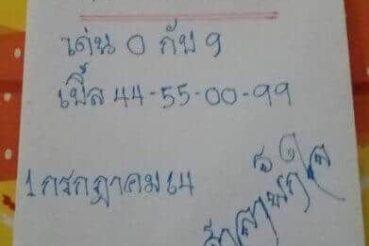 เด่น 0 กับ 9
เบิ้ล 44-55-00-99
1 กรกฎาคม 64